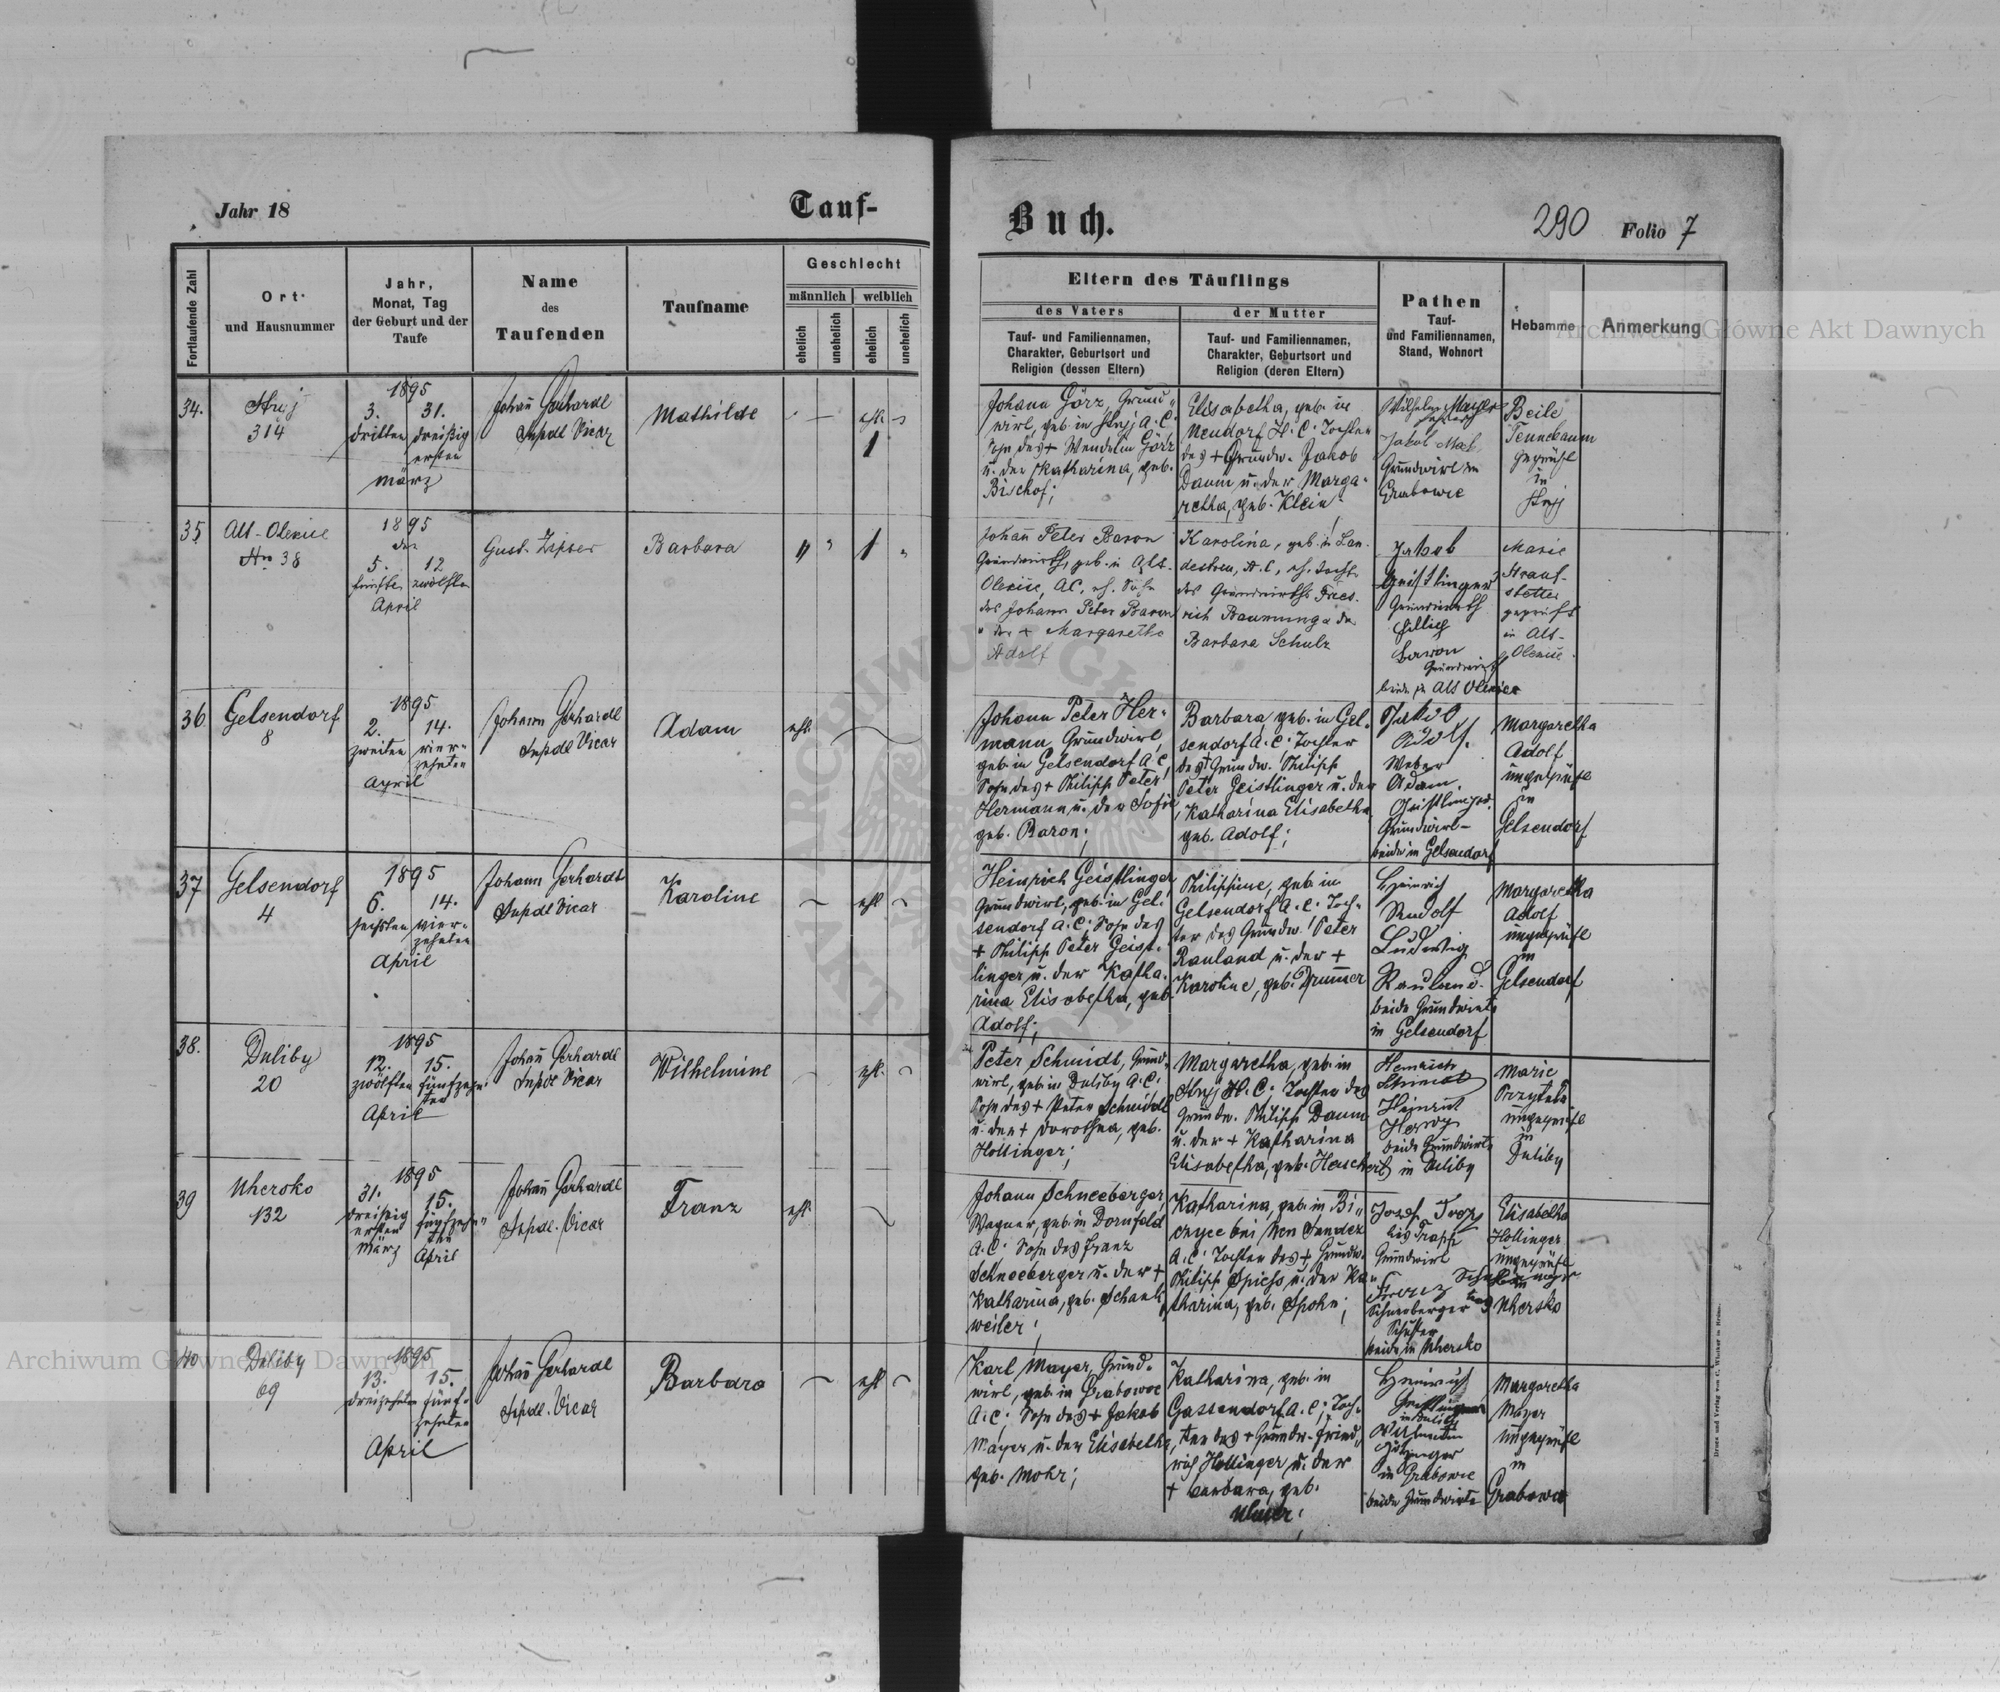 Jahr 18
Tauf-
Buch.
290
Folio 7
Fortlaufende Zahl
Ort
und Hausnummer
Jahr,
Monat, Tag
der Geburt und der
Taufe
Name
des
Taufenden
Taufname
Geschlecht
männlich
weiblich
ehelich
unehelich
ehelich
unehelich
Eltern des Täuflings
des Vaters
Tauf- und Familiennamen,
Charakter, Geburtsort und
Religion (dessen Eltern)
der Mutter
Tauf- und Familiennamen,
Charakter, Geburtsort und
Religion (deren Eltern)
Pathen
Tauf-
und Familiennamen,
Stand, Wohnort
Hebamme
Anmerkung
34.
Stryj
314
1895
3. 31.
dritten dreißig
ersten
März
Johañ Gerhardt
Supdt Vicar
Mathilde
ehl.
1
Johann Görz, Grund-
wirt, geb. in Stryj A. C.
Sohn des + Wendelin Görz
u. der Katharina, geb.
Bischof;
Elisabetha, geb. in
Neudorf H. C. Tochter
des + Grundw. Jakob
Daum u. der Marga-
retha, geb. Klein
Wilhelm Mayer
Jakob
Grundwirt in
Grabowce
Beile
Tennebaum
geprüft
in
Stryj
35
Alt-Olexice
No 38
1895
den
5. 12
fünfte zwölfte
April
Gust. Zipser
Barbara
" " 1 "
Johañ Peter Baron
Grundwirth, geb. in Alt-
Olexice, AC, eh. Sohn
des Johann Peter Baron
u der + Margaretha
Adolf
Karolina, geb. in Lan-
destreu, A. C, eh. Tocht.
des Grundwirths Fried-
rich Baumung u der
Barbara Schulz
Jakob
Geistlinger
Grundwirth
Baron
Grundwirt
beide in Alt Olexice
Marie
Strauf-
stetter
geprüft
in Alt-
Olexice.
36
Gelsendorf
8
1895
2. 14.
zweiten vier-
zehnten
April
Johann Gerhardt
Supdt Vicar
Adam
ehl.
Johann Peter Her-
mann Grundwirt,
geb. in Gelsendorf A. C,
Sohn des + Philipp Peter
Hermann u. der Sofie
geb. Baron;
Barbara, geb. in Gel-
sendorf A. C; Tochter
des + Grundw. Philipp
Peter Geistlinger u. der
Katharina Elisabetha
geb. Adolf;
Jakob
Adolf.
Weber
Adam
Geistlinger
Grundwirt-
beide in Gelsendorf
Margaretha
Adolf
ungeprüft
in
Gelsendorf
37
Gelsendorf
4
1895
6. 14.
sechsten vier-
zehnten
April
Johann Gerhardt
Supdt Vicar
Karoline
ehl
Heinrich Geistlinger
Grundwirt, geb. in Gel-
sendorf A. C; Sohn des
+ Philipp Peter Geist-
linger u. der Katha-
rina Elisabetha, geb.
Adolf;
Philippine, geb. in
Gelsendorf A. C. Toch-
ter des Grundw. Peter
Rauland u. der +
Karoline, geb. Drum̄er
Heinrich
Ludwig
Rauland
beide Grundwirte
in Gelsendorf
Margaretha
Adolf
ungeprüft
in
Gelsendorf
38.
Duliby
20
1895
12. 15.
zwölften fünfzehn-
ten
April
Johañ Gerhardt
Supdt Vicar
Wilhelmine
ehl.
Peter Schmidt, Grund-
wirt, geb. in Duliby A. C.
Sohn des + Peter Schmidt
u. der + Dorothea, geb.
Hollinger;
Margaretha, geb. in
Stryj H. C; Tochter des
Grundw. Philipp Daum
u. der + Katharina
Elisabetha, geb. Herschert
Heinrich
Schmidt
Heinrich
beide Grundwirte
in Duliby
Marie
ungeprüft
in
Duliby
39
Uhersko
132
1895
31. 15.
dreißig fünfzehn-
ersten ten
März April
Johañ Gerhardt
Supdt. Vicar
Franz
ehl.
Johann Schneeberger,
Wagner, geb. in Dornfeld
A. C. Sohn des Franz
Schneeberger u. der +
Katharina, geb. Schank-
weiler;
Katharina, geb. in Bi-
czyce bei Neu Sandez
A. C. Tochter des + Grundw.
Philipp Spiess u. der Ka-
tharina, geb. Spohn;
Josef
Grundwirt
Franz
Schneeberger
Schuster
beide in Uhersko
Elisabetha
Hollinger
ungeprüft
in
Uhersko
40
Duliby
69
1895
13. 15.
dreizehnten fünf-
zehnten
April
Johañ Gerhardt
Supdt. Vicar
Barbara
ehl
Karl Mayer, Grund-
wirt, geb. in Grabowce
A. C; Sohn des + Jakob
Mayer u. der Elisabetha,
geb. Mohr;
Katharina, geb. in
Gassendorf A. C; Toch-
ter des + Grundw. Fried-
rich Hollinger u. der
+ Barbara, geb.
Ulmer;
Heinrich
in Duliby
in Grabowce
beide Grundwirte
Margaretha
Mayer
ungeprüft
in
Grabowce
Archiwum Główne Akt Dawnych